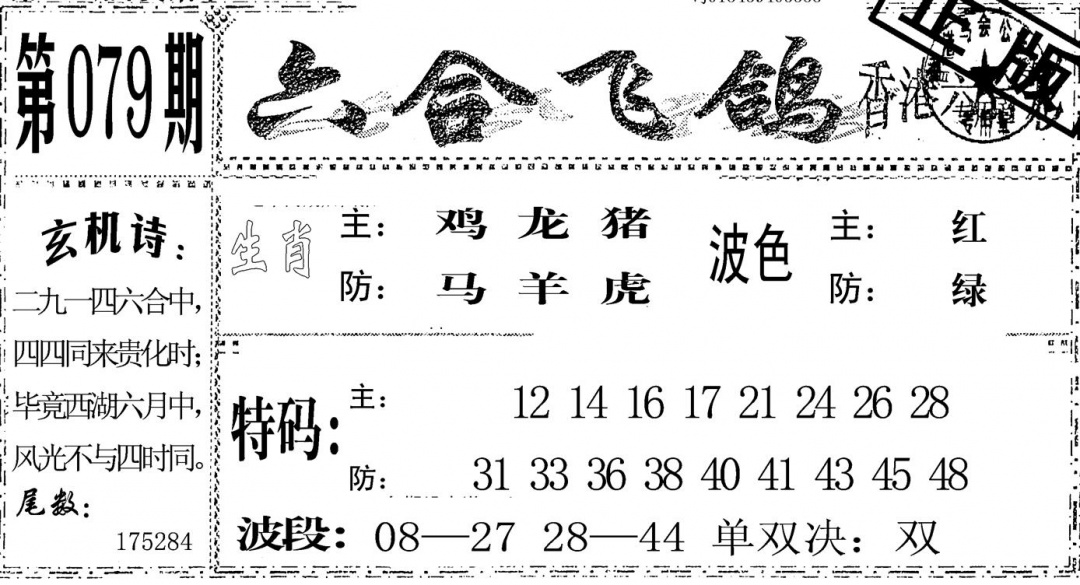 第079期
六合飞鸽
正版
玄机诗：
二九一四六合中，
四四同来贵化时；
毕竟西湖六月中，
风光不与四时同。
尾数：
175284
生肖
主：鸡龙猪
防：马羊虎
波色
主：红
防：绿
特码：
主：12 14 16 17 21 24 26 28
防：31 33 36 38 40 41 43 45 48
波段：08—27 28—44 单双决：双